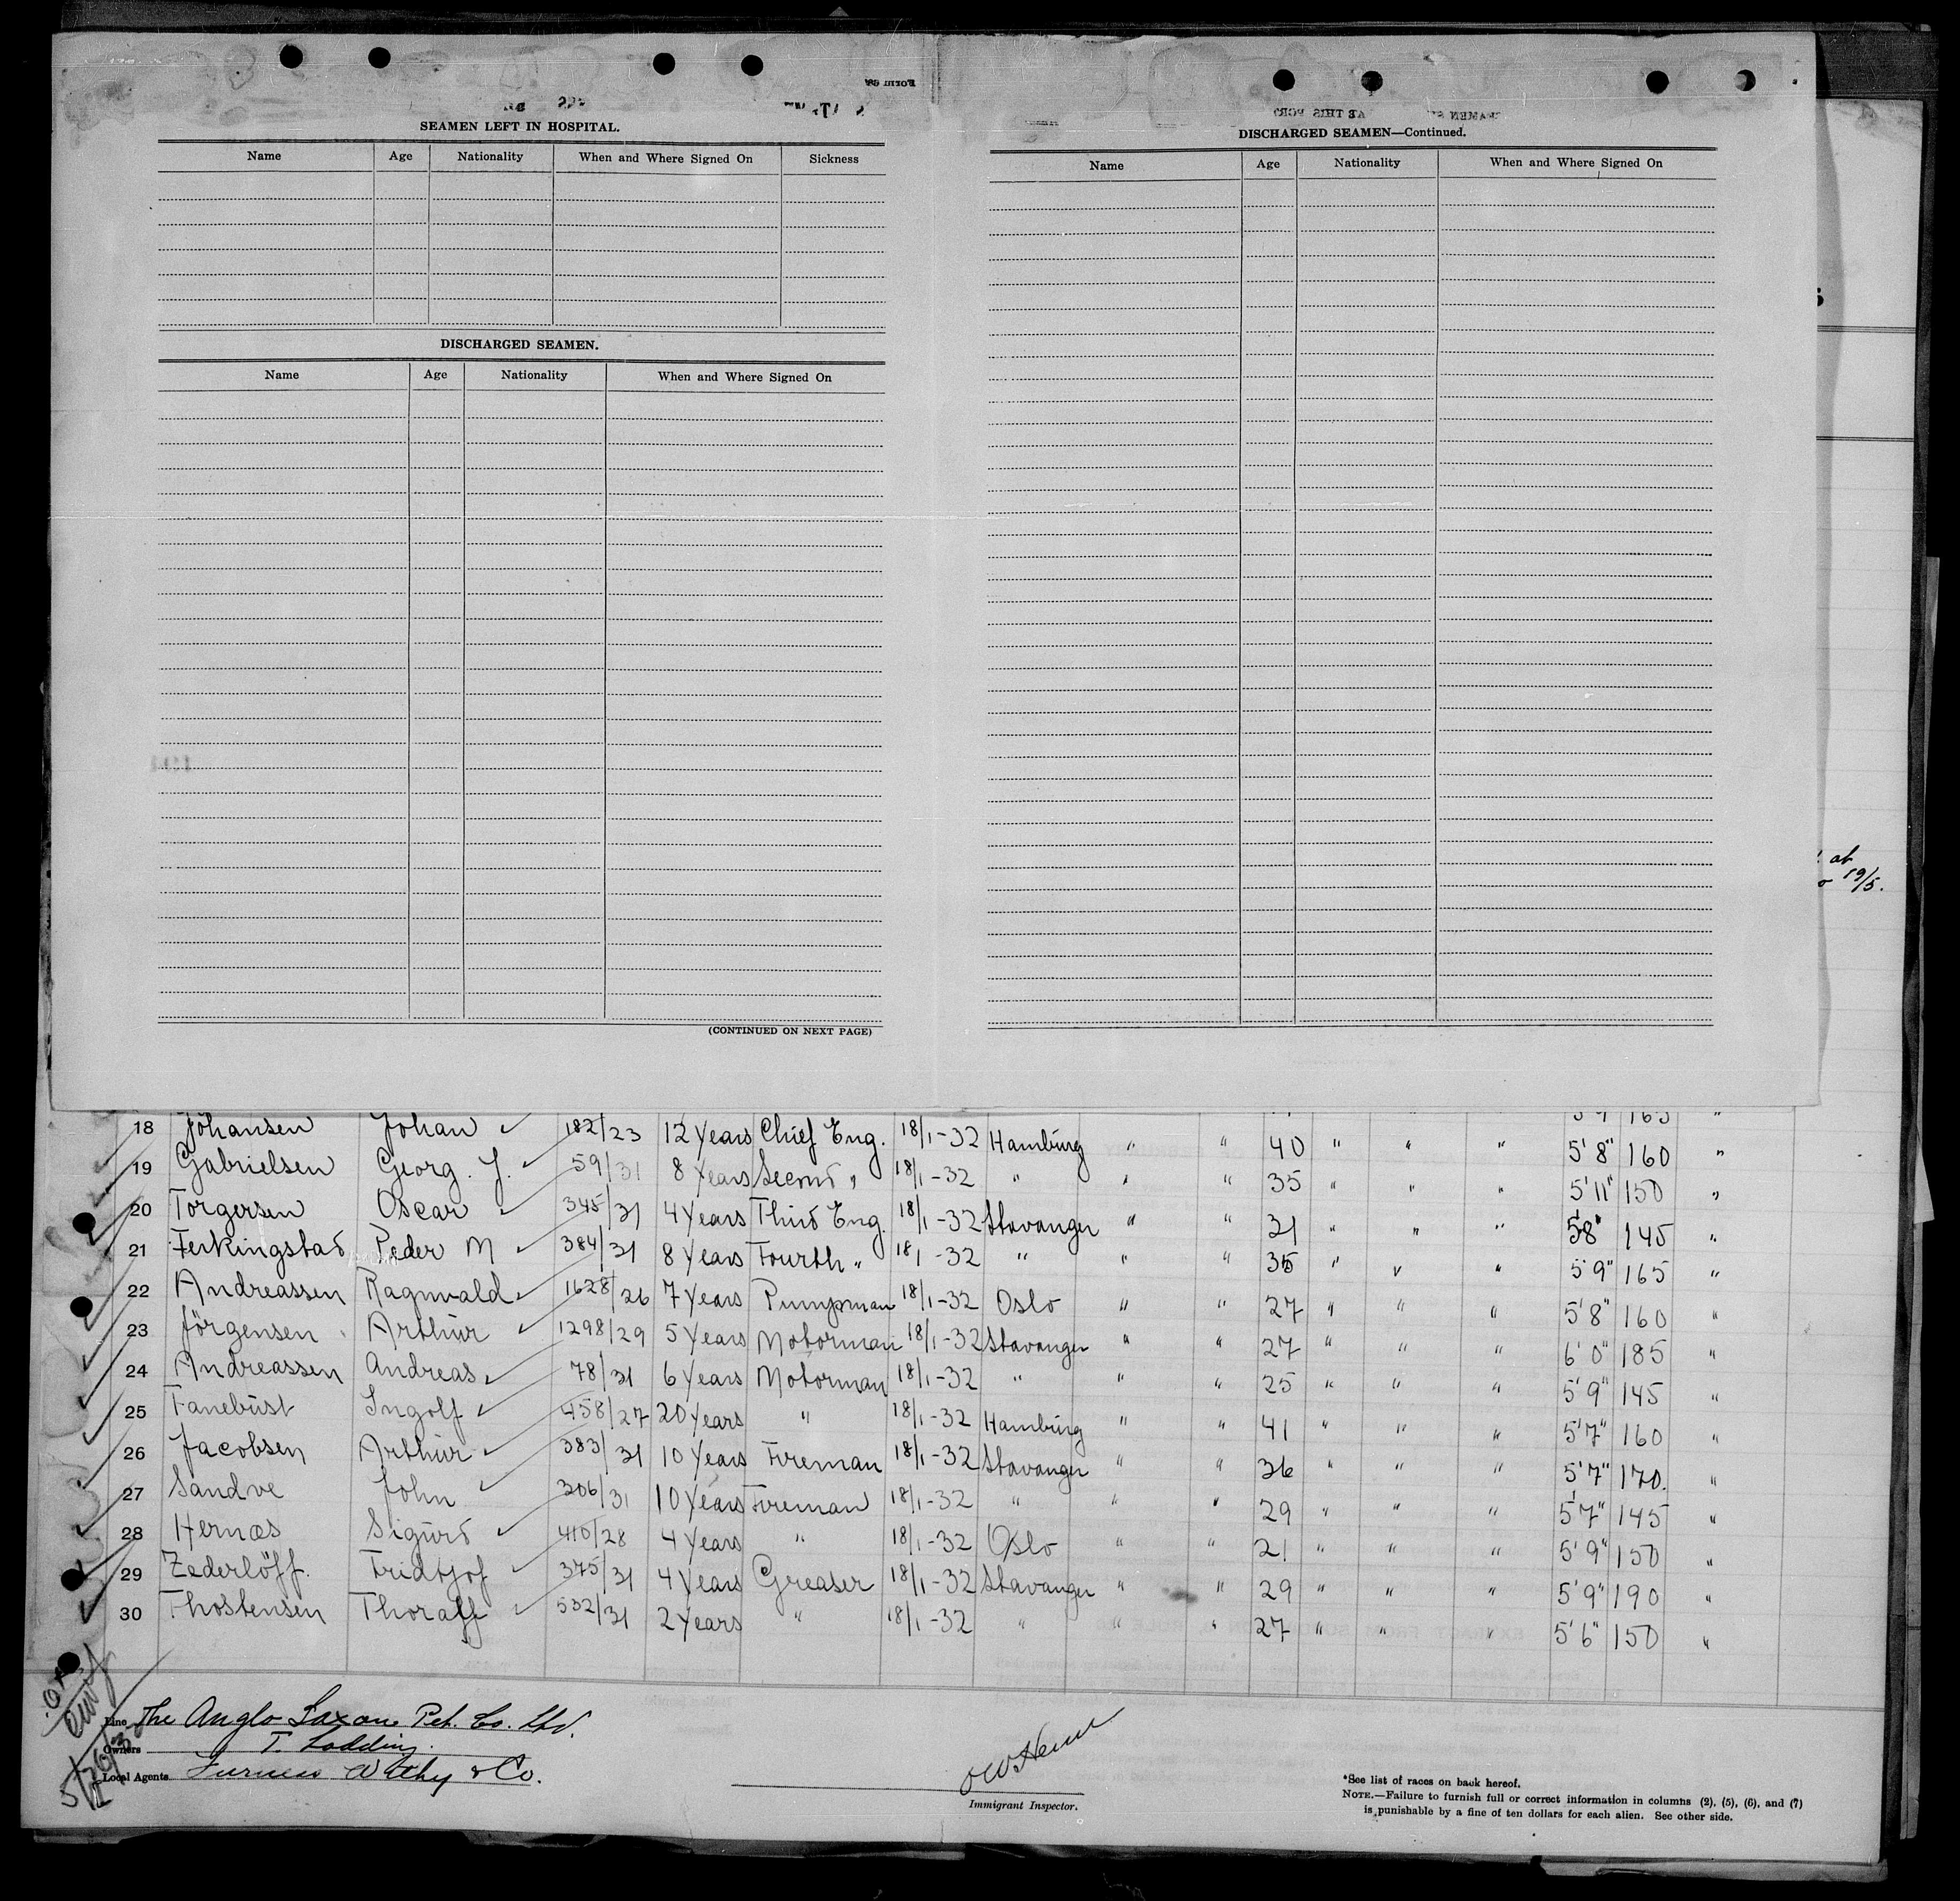 SEAMEN LEFT IN HOSPITAL.
Name Age Nationality When and Where Signed On Sickness
DISCHARGED SEAMEN.
Name Age Nationality When and Where Signed On
(CONTINUED ON NEXT PAGE)
DISCHARGED SEAMEN—Continued.
Name Age Nationality When and Where Signed On
at
19/5.
18 Johansen Johan 182/23 12 Years Chief Eng. 18/1-32 Hamburg " " 40 " " " 5'8" 160 "
19 Gabrielsen Georg. J. 59/31 8 Years Second " 18/1-32 " " " 35 " " " 5'11" 150 "
20 Torgersen Oscar 345/31 4 Years Third Eng. 18/1-32 Stavanger " " 31 " " " 5'8" 145 "
21 Ferkingstad Peder M 384/31 8 Years Fourth " 18/1-32 " " " 35 " " " 5'9" 165 "
22 Andreassen Ragnvald 1628/26 7 Years Pumpman 18/1-32 Oslo " " 27 " " " 5'8" 160 "
23 Jörgensen Arthur 1298/29 5 Years Motorman 18/1-32 Stavanger " " 27 " " " 6'0" 185 "
24 Andreassen Andreas 78/31 6 Years Motorman 18/1-32 " " " 25 " " " 5'9" 145 "
25 Fanebust Ingolf 458/27 20 Years " 18/1-32 Hamburg " " 41 " " " 5'7" 160 "
26 Jacobsen Arthur 383/31 10 Years Fireman 18/1-32 Stavanger " " 36 " " " 5'7" 170. "
27 Sandve John 306/31 10 Years Fireman 18/1-32 " " " 29 " " " 5'7" 145 "
28 Hernæs Sigurd 410/28 4 Years " 18/1-32 Oslo " " 21 " " " 5'9" 150 "
29 Zederlöff. Fridtjof 375/31 4 Years Greaser 18/1-32 Stavanger " " 29 " " " 5'9" 190 "
30 Thostensen Thoralf 532/31 2 Years " 18/1-32 " " " 27 " " " 5'6" 150 "
Line The Anglo Saxon Pet. Co. Ltd.
Owners T. Lodding.
Local Agents Furness Withy & Co.
Immigrant Inspector.
*See list of races on back hereof.
NOTE.—Failure to furnish full or correct information in columns (2), (5), (6), and (7)
is punishable by a fine of ten dollars for each alien. See other side.